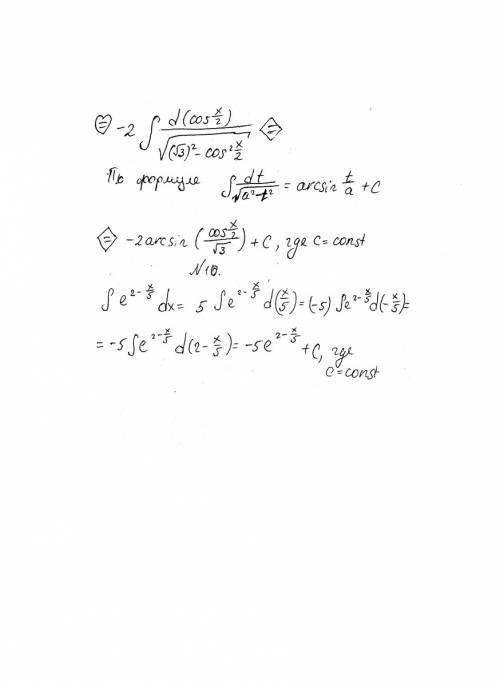 ⊜ -2 ∫ d(cos x/2) / √((√3)² - cos² x/2) ⊜
По формуле ∫ dt/√(a²-t²) = arcsin t/a + C
⊜ -2arcsin (cos x/2 / √3) + C, где C = const
N10.
∫e^(2-x/5) dx = 5 ∫e^(2-x/5) d(x/5) = (-5) ∫e^(2-x/5) d(-x/5) =
= -5∫e^(2-x/5) d(2-x/5) = -5e^(2-x/5) + C, где
C = const